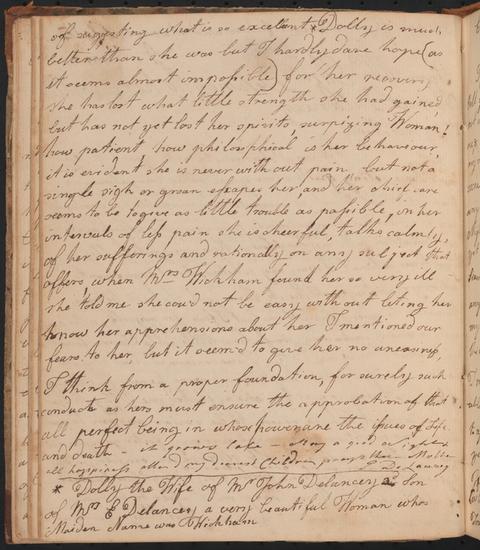 of suggesting what is so excellent * Dolly is much
better than she was but I hardly dare hope (as
it seems almost impossible) for her recovery
she has lost what little strength she had gained,
but has not yet lost her spirits, surprizing Woman!
how patient how philosophical is her behaviour,
it is evident she is never without pain but not a
single sigh or groan escapes her, and her chief care
seems to be to give as little trouble as possible, in her
intervals of less pain she is cheerful, talks calmly,
of her sufferings and rationally on any subject that
offers when Mrs Wickham found her so very ill
she told me she cou'd not be easy without leting her
know her apprehensions about her I mentioned our
fears to her, but it seem'd to give her no uneasiness,
I think from a proper foundation, for surely such
conduct as hers must ensure the approbation of that
all perfect being in whose power are the issues of Life
and death - it grows late - May a good night &
all happiness attend my dearest Children prays their Mother
E DeLancey
* Dolly the Wife of Mr John Delancey a Son
of Mrs E Delancey a very beautiful Woman whos
Maiden Name was Wickham